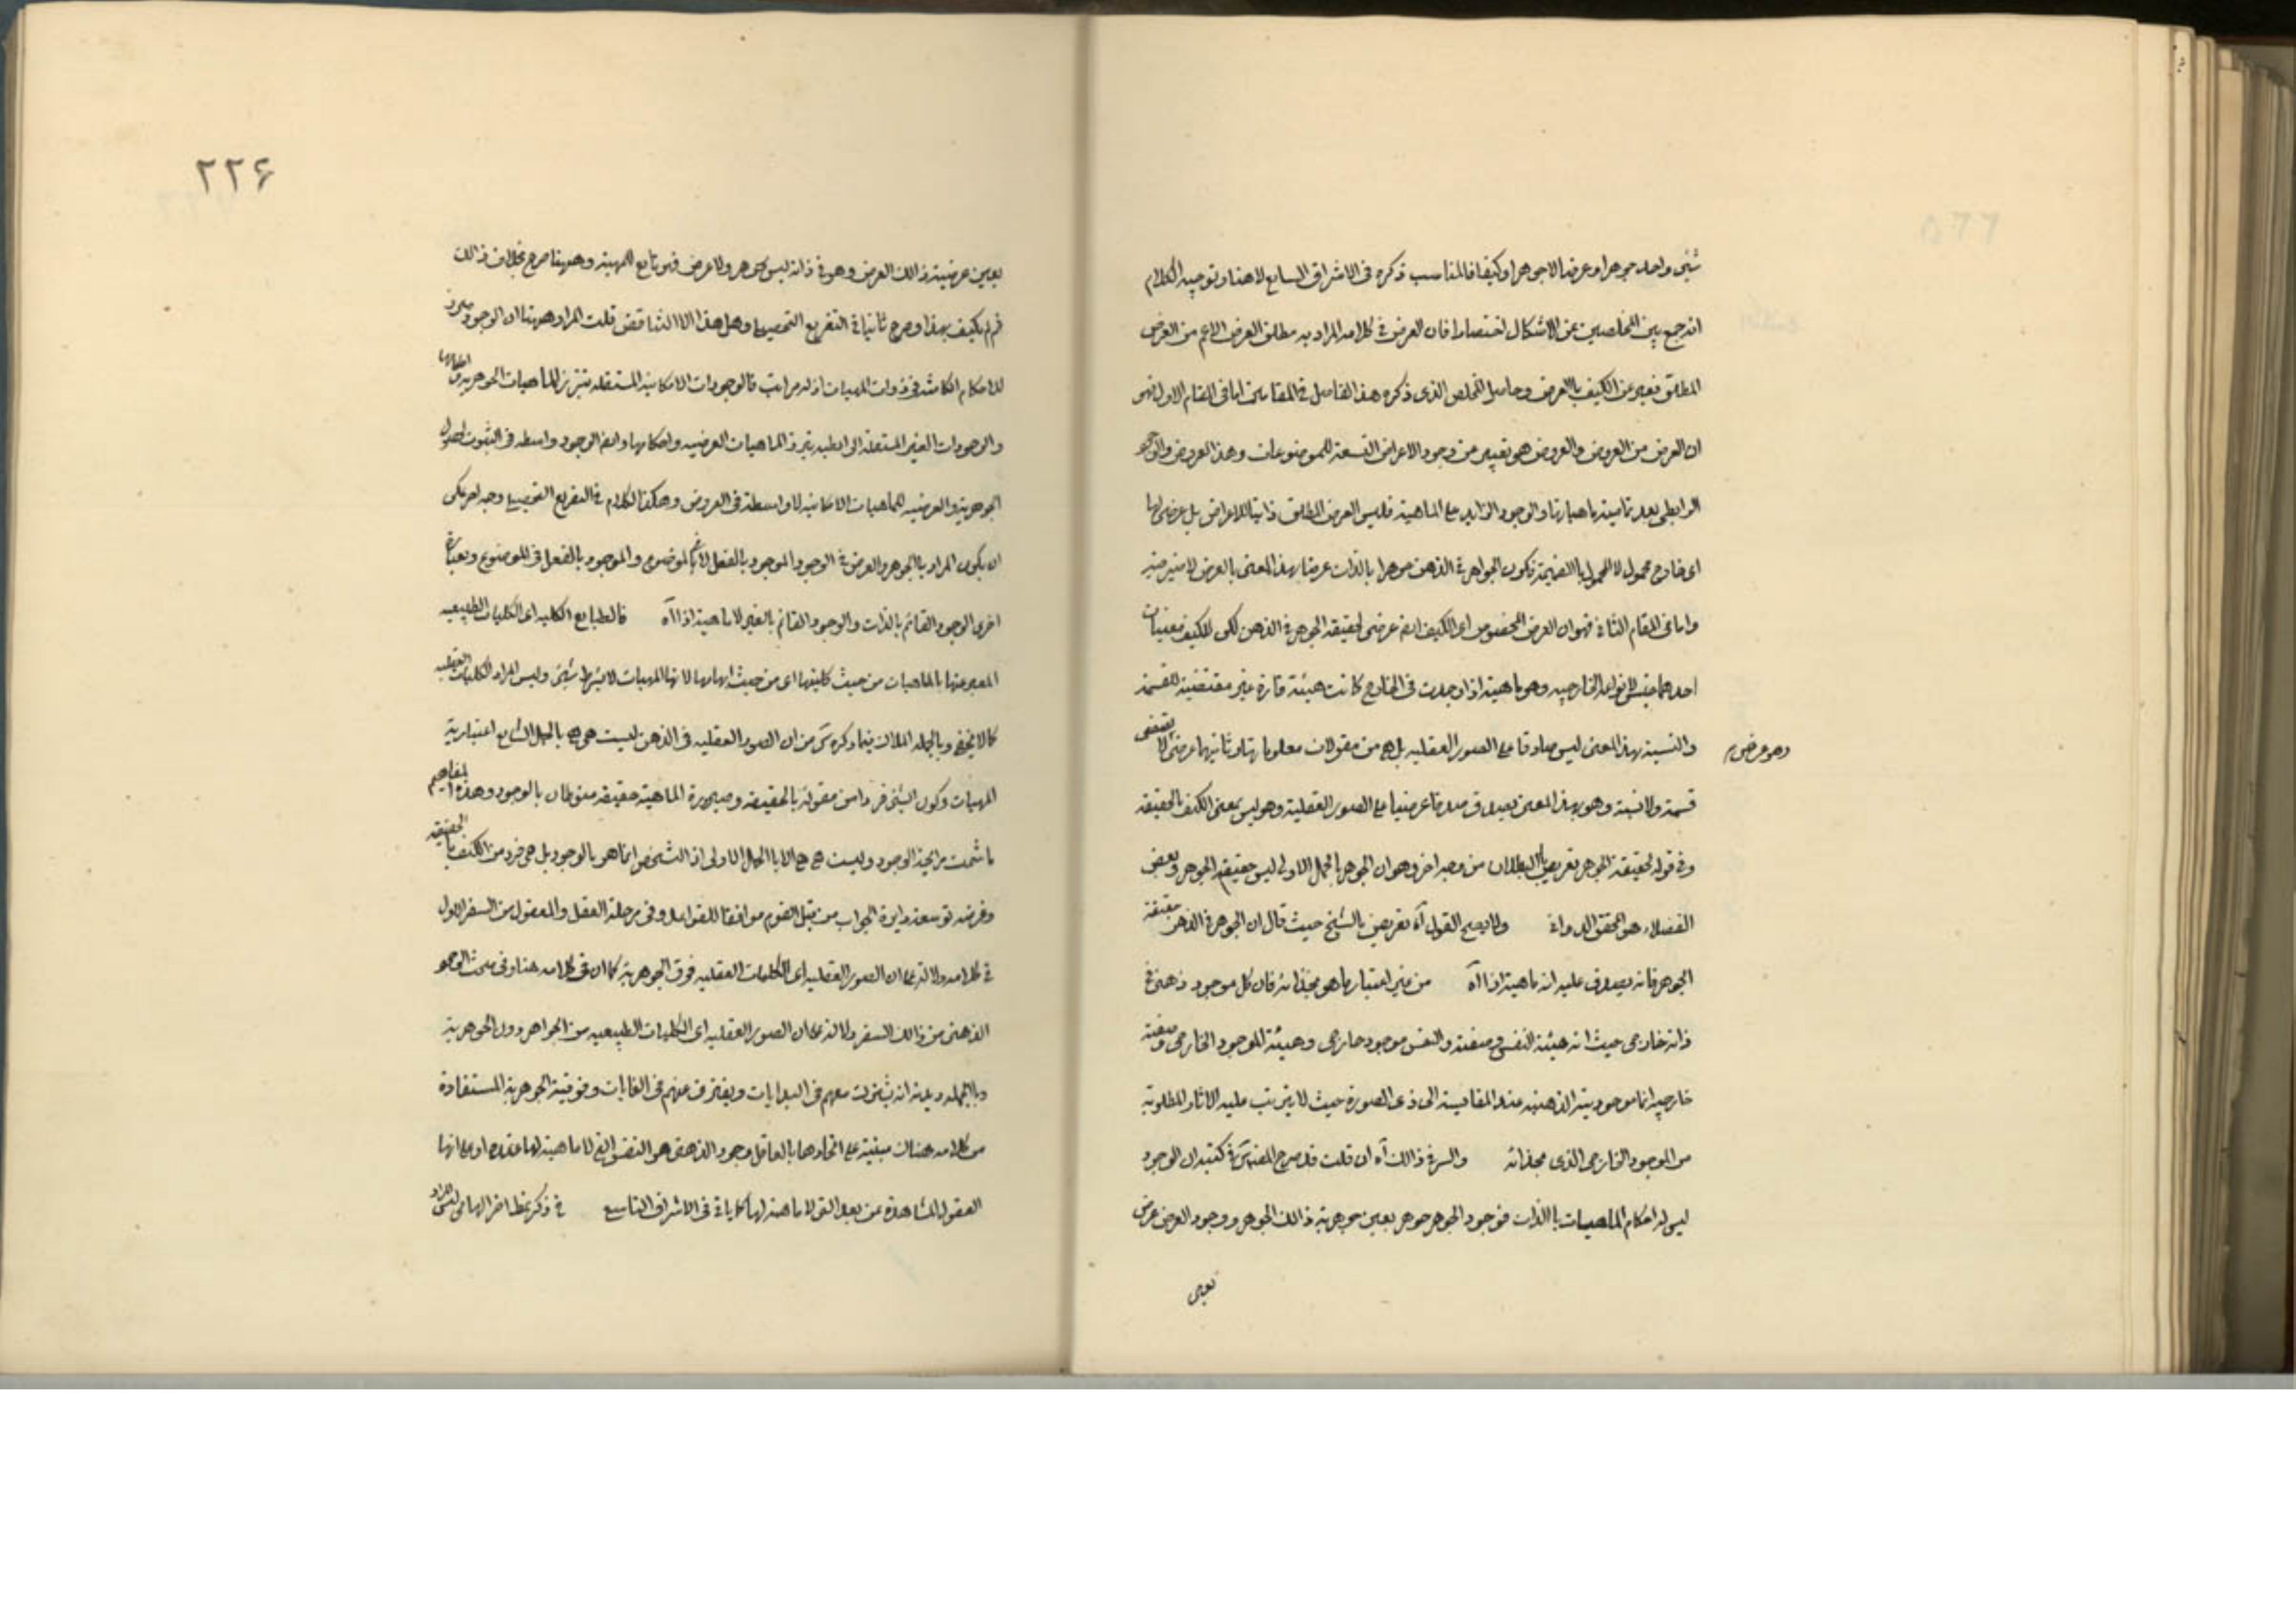 شیئ واحد جوهرا وعرضا لا جوهرا وكيفا فالمناسب ذكره فى الاشراق السابع لا هنا وتوجيه الكلام
انه جمع بين المخلصين عن الاشكال اختصارا فان العرض فى كلامه المراد به مطلق العرض الاعم من العرض
المطلق فعبر عن الكيف بالعرض وحاصل المخلص الذى ذكره هذا الفاضل فى المقامين اما فى المقام الاول فهو
ان العرض من العروض والعروض هو تعبير من وجود الاعراض التسعة للموضوعات وهذا العروض والوجود
الرابطى بعد تمامية ماهياتها والوجود الزايد على الماهية فليس العرض المطلق ذاتيا للاعراض بل عرضى لها
اى خارج محمول لا المحمول بالضميمة فكون الجواهر فى الذهن جوهرا بالذات عرضا بهذا المعنى بالعرض لا ضير فيه
واما فى المقام الثانى فهو ان العرض المخصوص اى الكيف ايضا عرضى لحقيقة الجوهر فى الذهن لكن للكيف معنيان
احدهما جنس للانواع الخارجيه وهو ماهية اذا وجدت فى الخارج كانت هيئة قارة غير مقتضية للقسمة
والنسبة بهذا المعنى ليس صادقا على الصور العقليه بل هى من مقولات معلوماتها وثانيهما عرض لا يقتضى
وهو عرض م
قسمة ولا نسبة وهو بهذا المعنى يصدق صدقا عرضيا على الصور العقلية وهو ليس بمعنى الكيف بالحقيقه
وفى قوله لحقيقة الجوهر تعريض بالبطلان من وجه اخر وهو ان الجوهر بالحمل الاولى ليس حقيقة الجوهر وبعض
الفضلاء هو المحقق الدوانى ولا يصح القول آه تعريض بالشيخ حيث قال ان الجوهر فى الذهن حقيقة
الجوهر فانه يصدق عليه انه ماهية اذا آه من غير اعتبار ما هو بحذائه فان كل موجود ذهنى فى
ذاته خارجى حيث انه هيئة النفس وصفته والنفس موجود خارجى وهيئة الموجود الخارجى وصفته
خارجيه انما موجوديته الذهنيه عند المقايسة الى ذى الصورة حيث لا يترتب عليه الاثار المطلوبة
من الموجود الخارجى الذى بحذائه والسر فى ذالك آه ان قلت قد صرح المصنف س فى كتبه ان الوجود
ليس له احكام الماهيات بالذات فوجود الجوهر جوهر بعين جوهرية ذالك الجوهر ووجود العرض عرض
بعين
٢٢۶
بعين عرضية ذالك العرض وهو فى ذاته ليس بجوهر ولا عرض فهو تابع للمهية وههنا صرح بخلاف ذالك
ثم لم يكتف بهذا وصرح ثانيا فى التفريع وهل هذا الا التناقض قلت المراد ههنا ان الوجود مبرز
للاحكام الكامنة فى ذوات المهيات اذ له مراتب فالوجودات الامكانية المستقله تبرز الماهيات الجوهرية واحكامها
والوجودات الغير المستقلة الرابطيه تبرز الماهيات العرضيه واحكامها وايضا الوجود واسطه فى الثبوت لحصول
الجوهرية والعرضيه للماهيات الامكانيه لا واسطة فى العروض وهكذا الكلام فى التفريع وجه اخر يمكن
ان يكون المراد بالجوهر والعرض فى الوجود الموجود بالفعل لا فى الموضوع والموجود بالفعل فى الموضوع وبعبارة
اخرى الوجود القائم بالذات والوجود القائم بالغير لا ماهية اذا آه فالطبايع الكليه اى الكليات الطبيعيه
المعبر عنها بالماهيات من حيث كليتها اى من حيث ابهامها لانها المهيات لا بشرط شیئ وليس المراد الكليات العقليه
كما لا يخفى وبالجمله الملاك فيما ذكره س من ان الصور العقليه فى الذهن ليست هى هى بالحمل الشايع اعتبارية
المهيات وكون الشیئ فردا من مقولة بالحقيقه وصيرورة الماهية حقيقة منوطان بالوجود وهذه المفاهيم
ما شمت رايحة الوجود وليست هى هى الا بالحمل الاولى اذ التشخص انما هو بالوجود بل هى فرد من الكيف بالحقيقه
وغرضه توسعة دايرة الجواب من قبل القوم موافقا للقواعد وفى مرحلة العقل والمعقول من السفر الاول
فى كلامه دلالة على ان الصور العقليه اى الكليات العقليه فوق الجوهرية كما ان فى كلامه هنا وفى مبحث الوجود
الذهنى من ذالك السفر دلالة على ان الصور العقليه اى الكليات الطبيعيه من الجواهر دون الجوهرية
وبالجمله ديدنه انه يشترك معهم فى البدايات ويفترق عنهم فى الغايات وفوقية الجوهرية المستفادة
من كلامه هناك مبنية على اتحادها بالعاقل وجود الذهنى هو النفس التى لا ماهية لها عنده او على انها
العقول المشاهدة عن بعد التى لا ماهية لها كما ياتى فى الاشراق التاسع فى ذكر نمط اخر الهامى ليس المراد